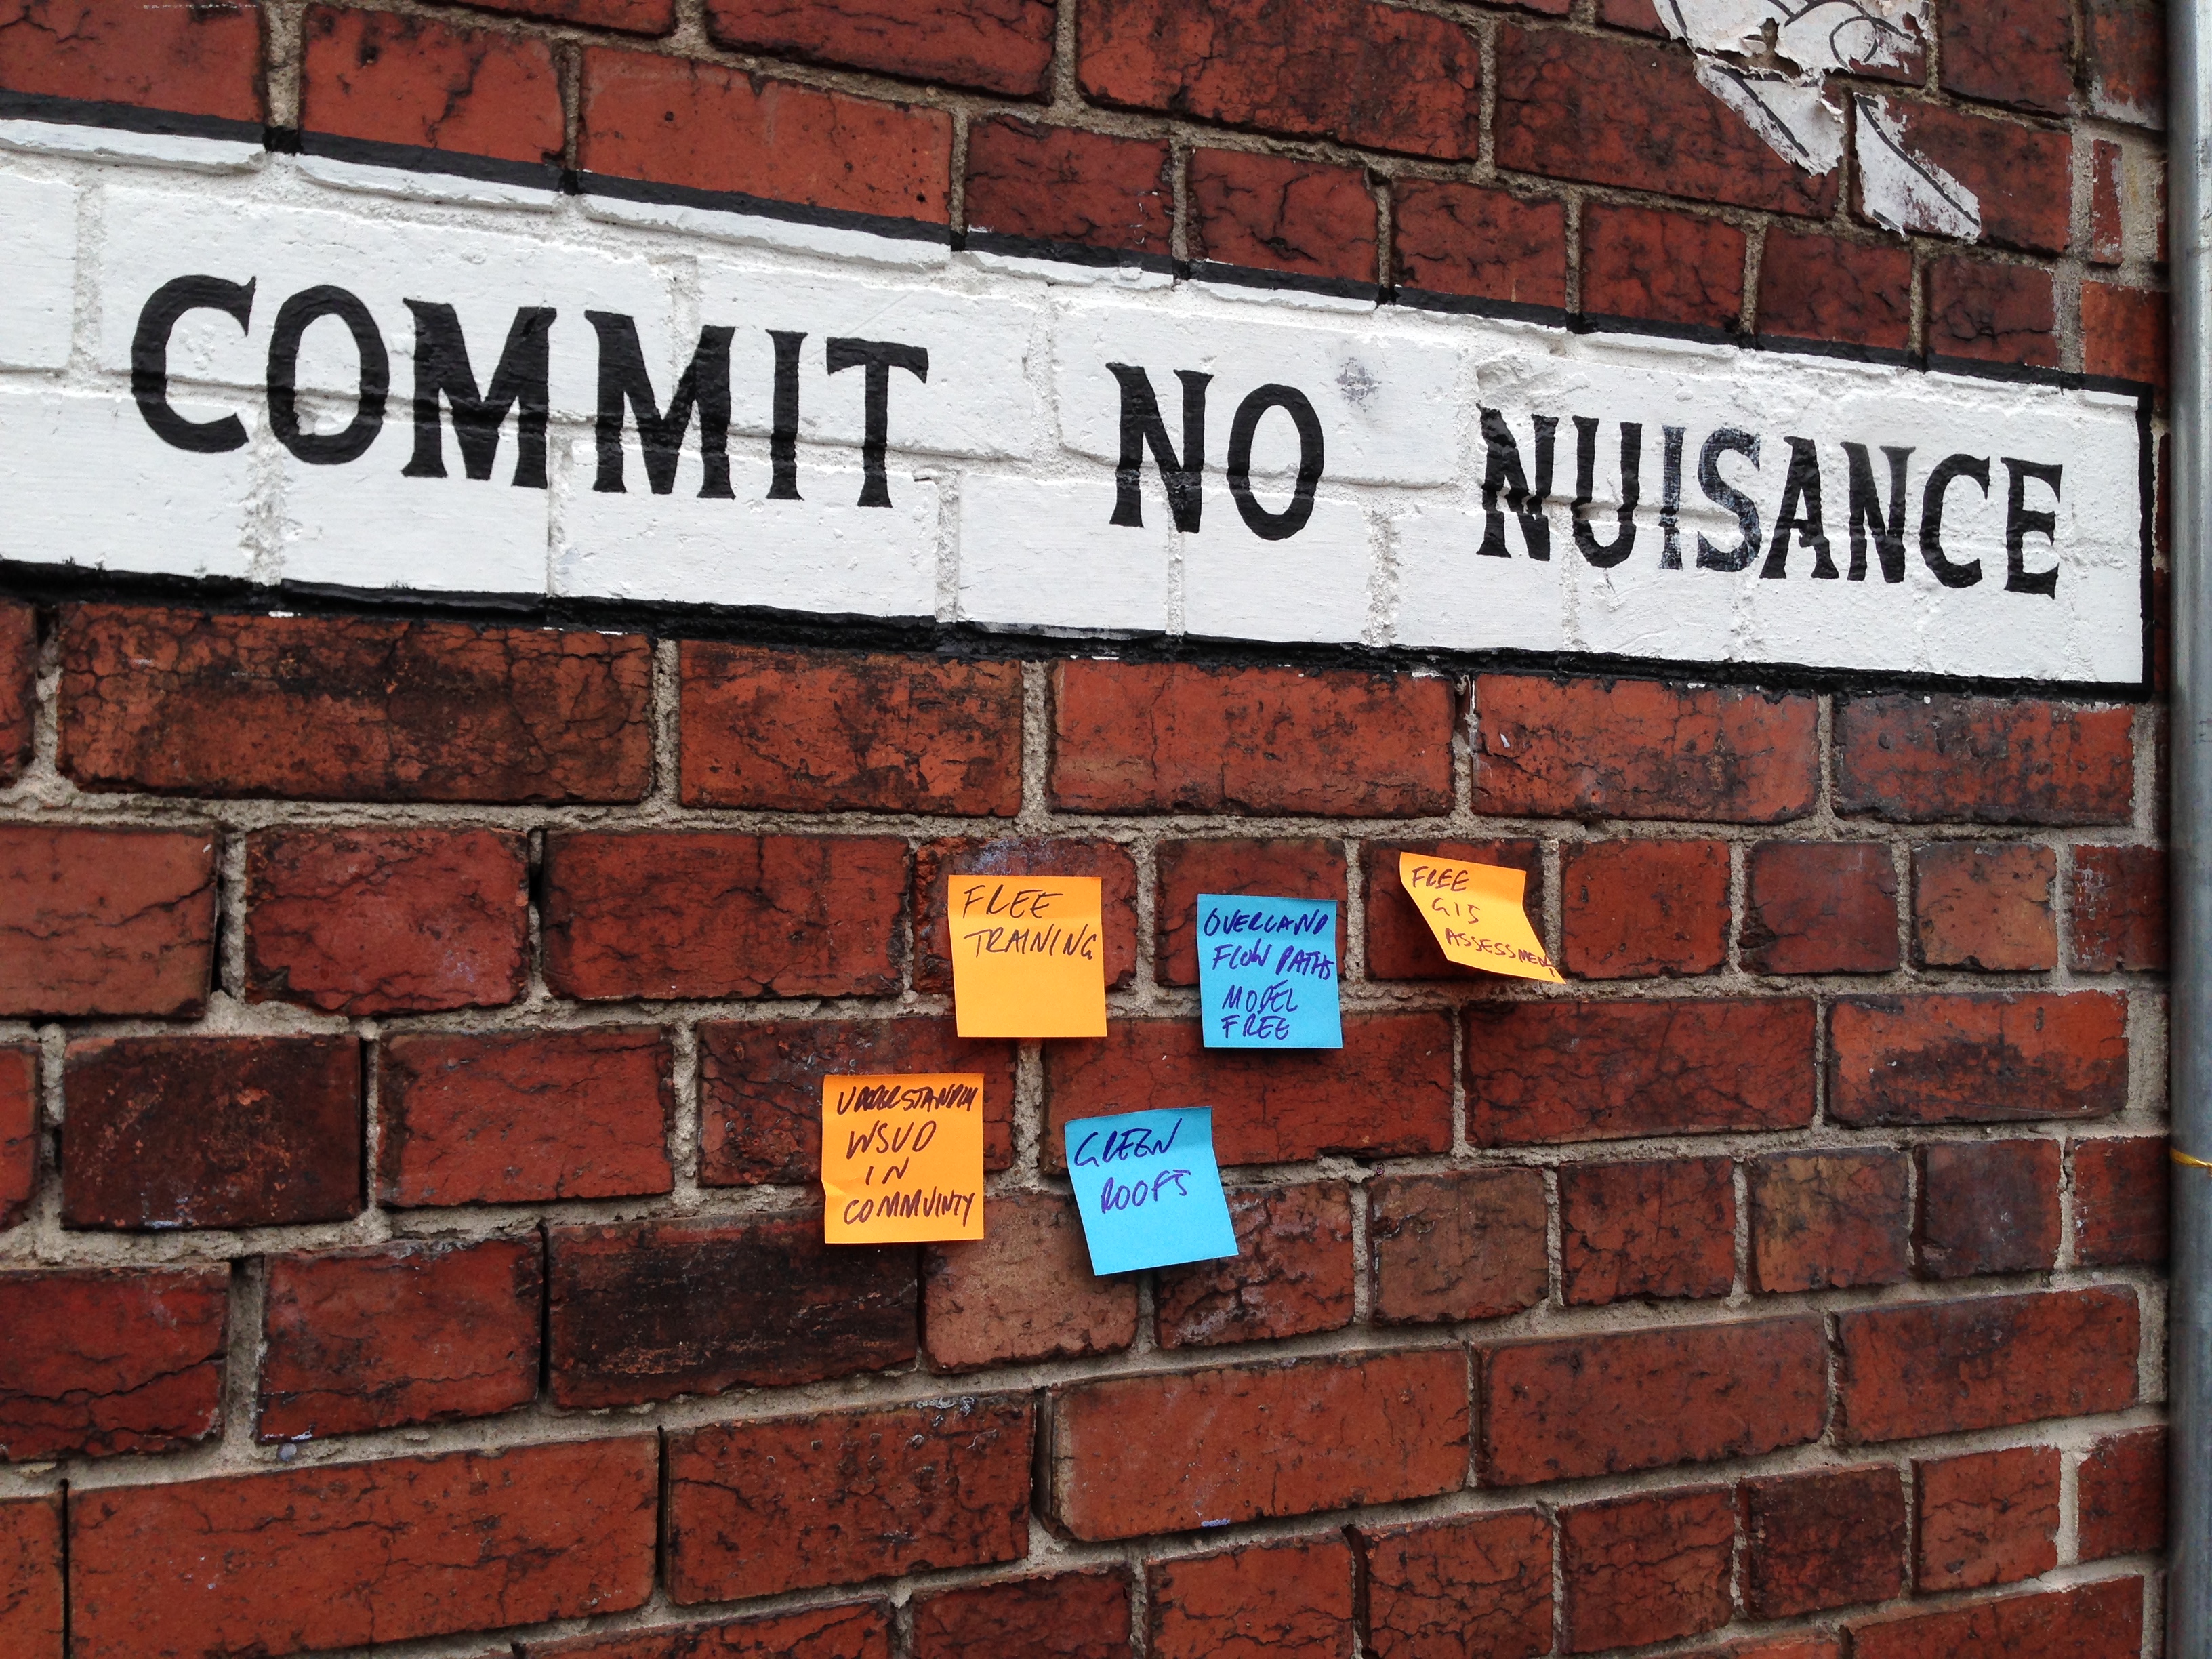 COMMIT NO NUISANCE
FREE
TRAINING
OVERLAND
FLOW PATHS
MODEL
FREE
FREE
GIS
ASSESSMENT
UNDERSTANDIN
WSUD
IN
COMMUNITY
GREEN
ROOFS